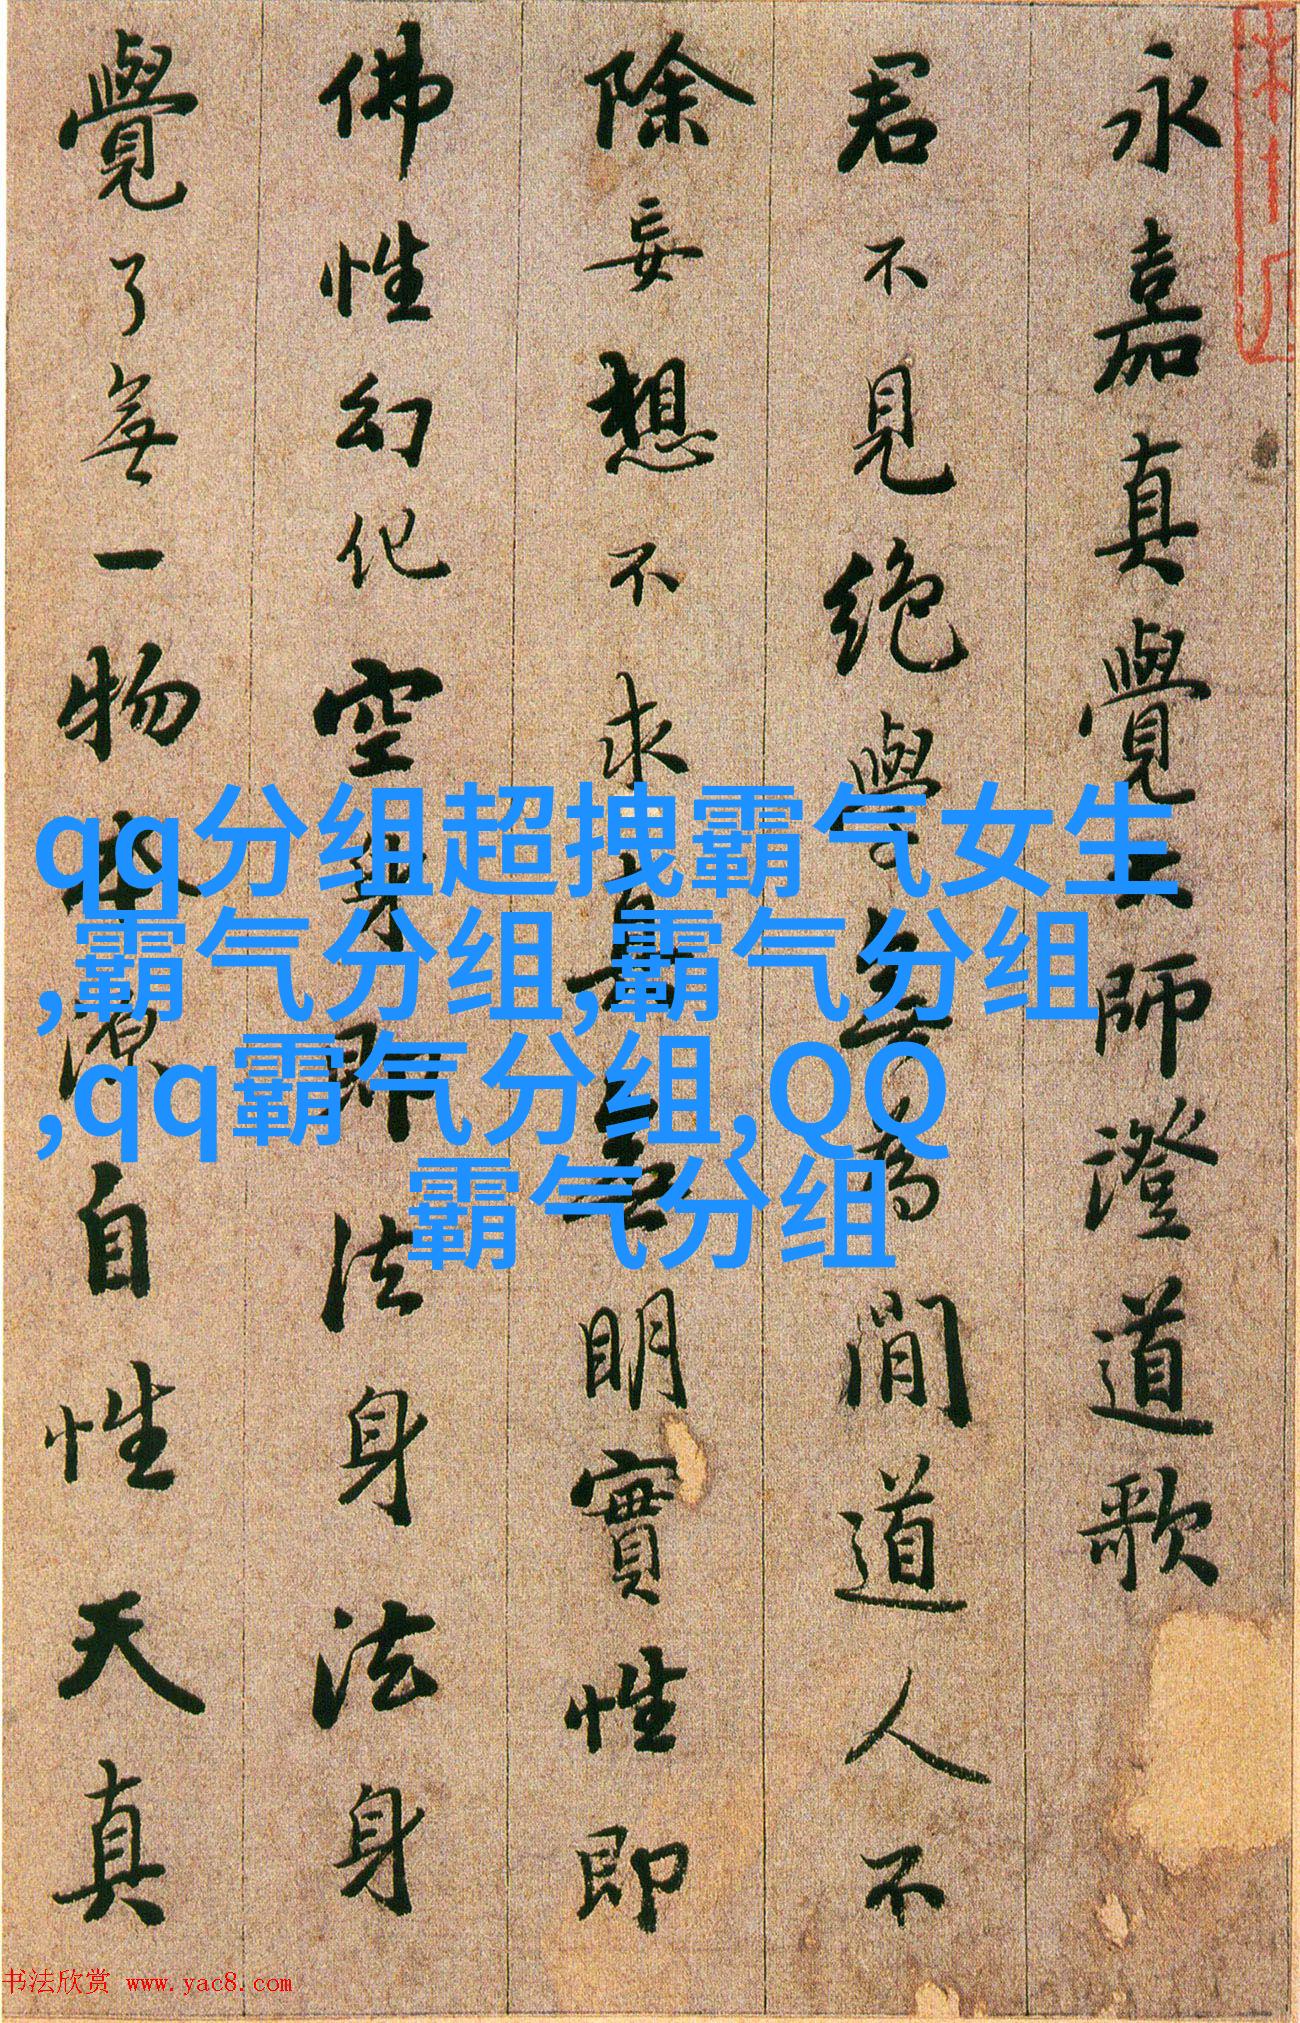 永嘉真覺大師澄道歌
君不見絕學無為閒道人不
除妄想不求真無明實性即
佛性幻化空身即法身法身
覺了無一物本源自性天真
qq分组超拽霸气女生
,霸气分组,霸气分组
,qq霸气分组,QQ
霸气分组
书法欣赏 www.yac8.com